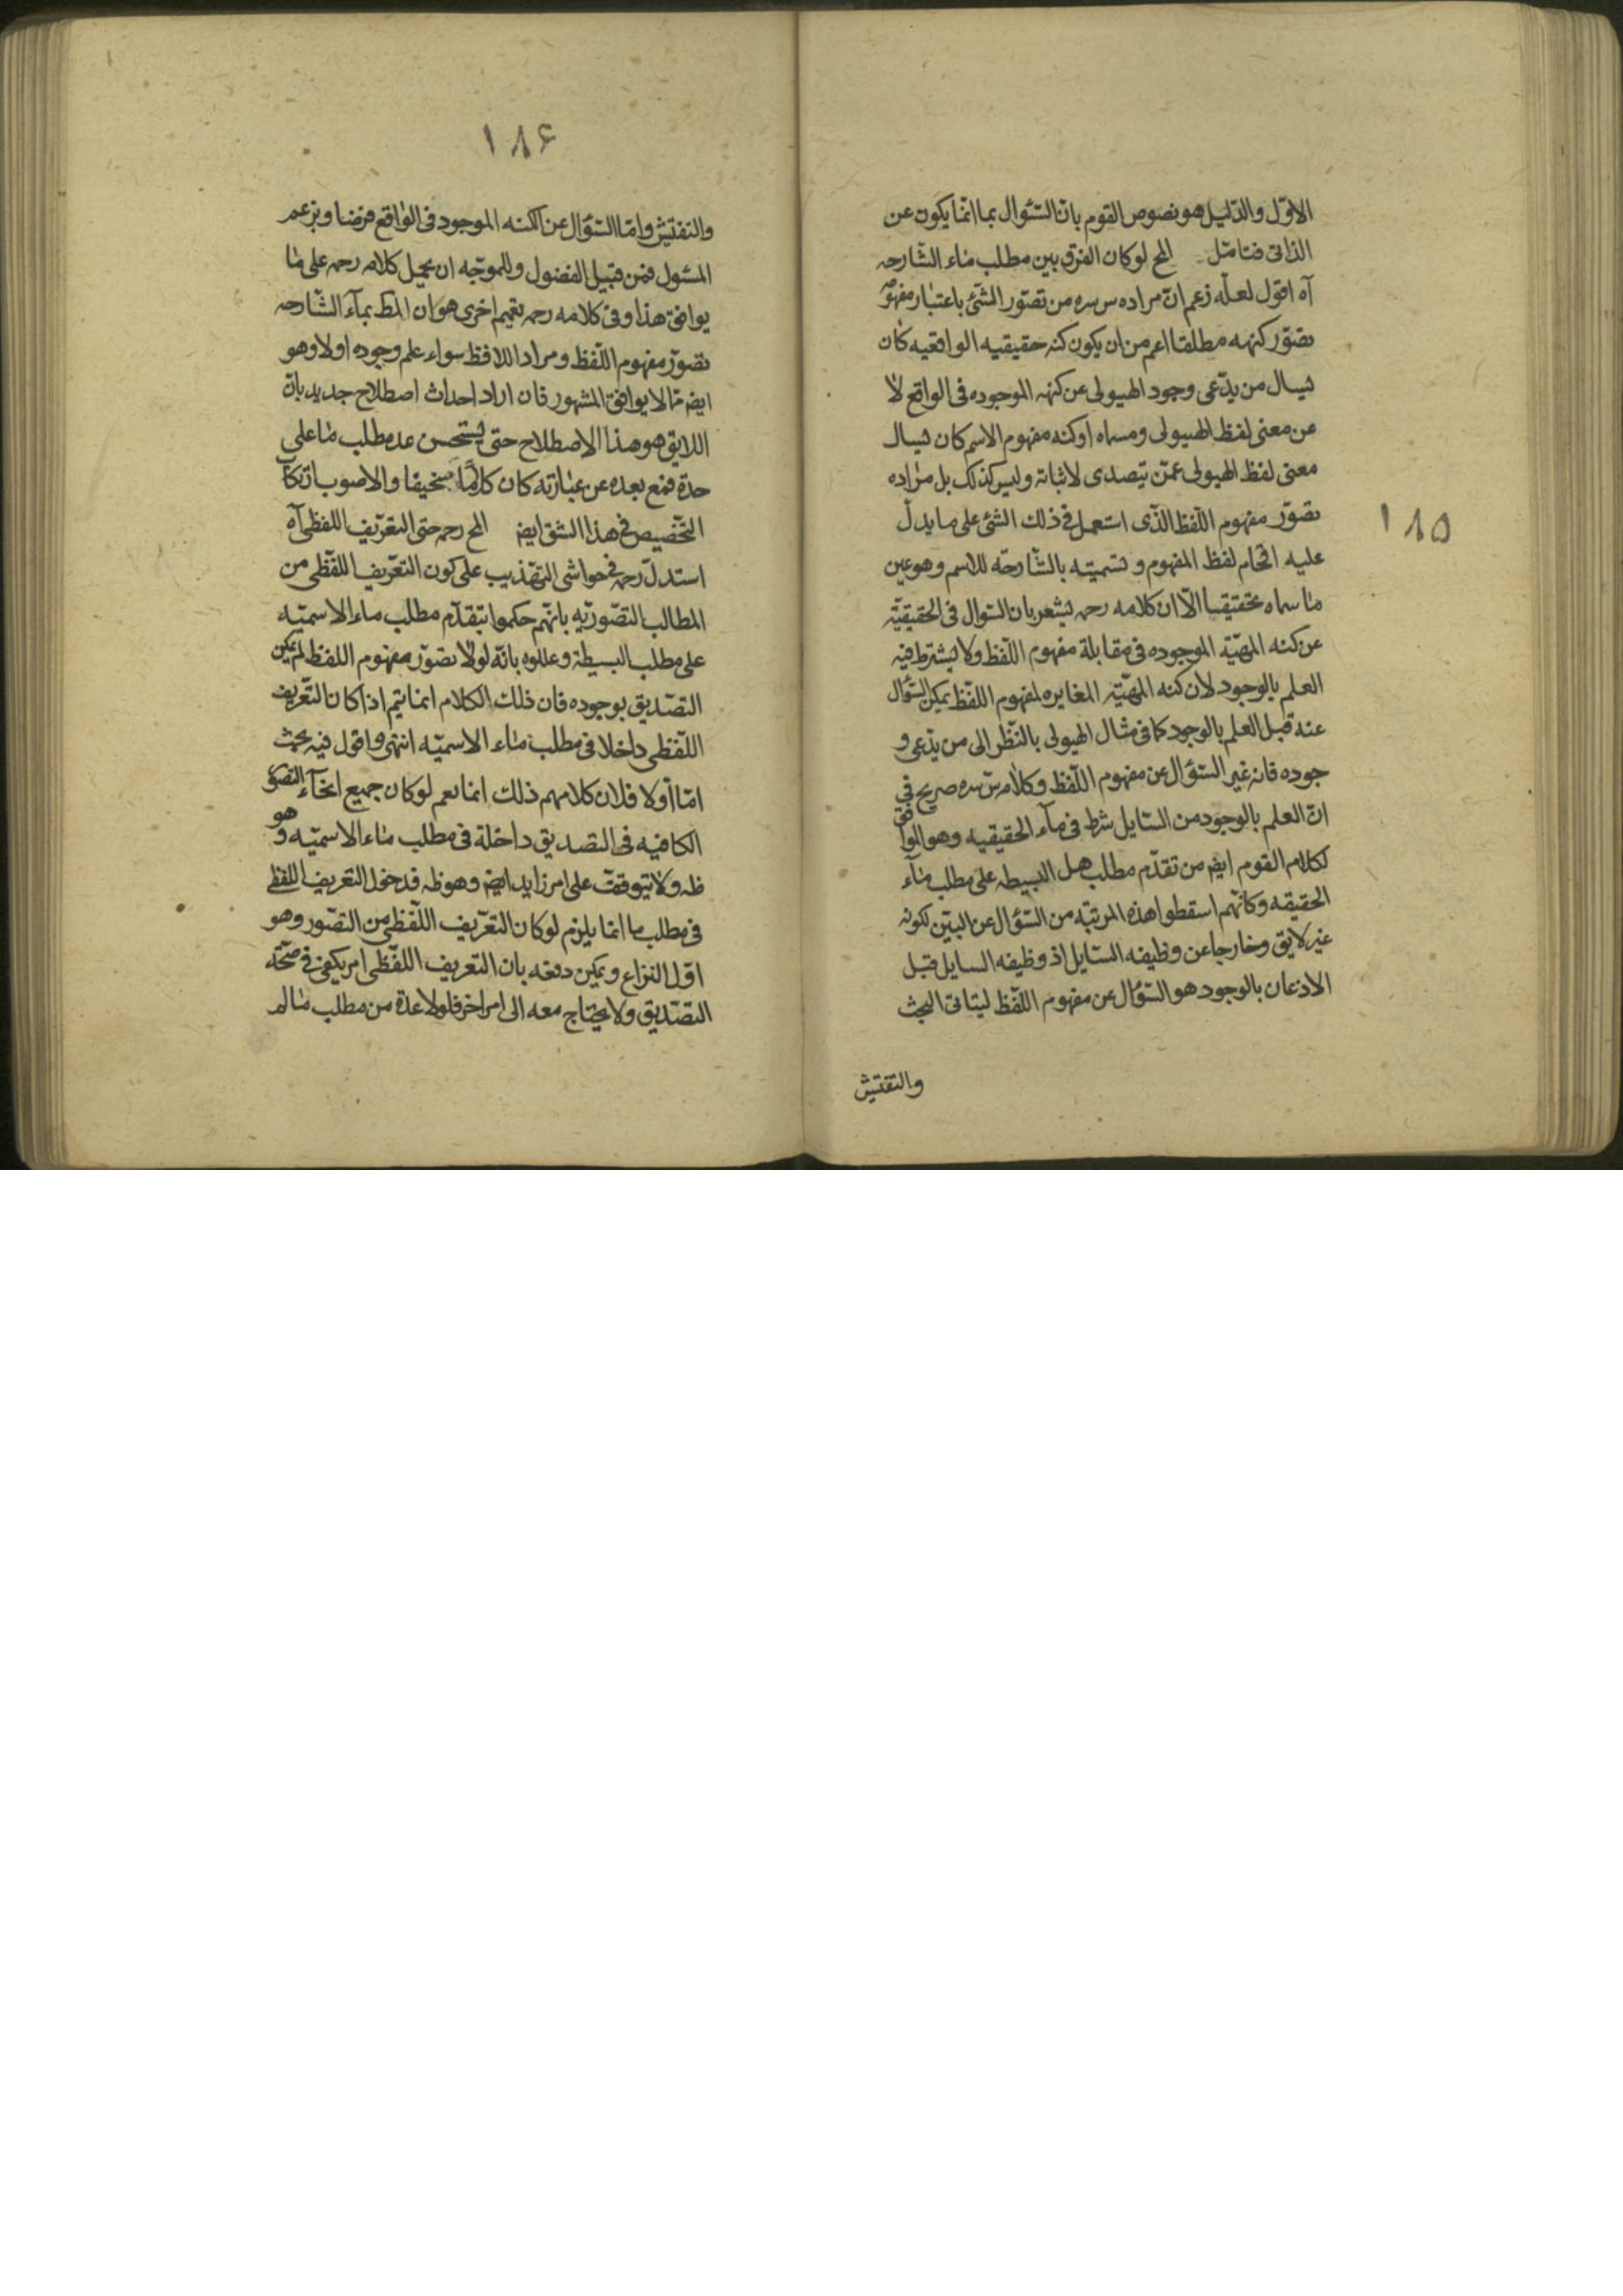 الاوّل والدّليل هو نصوص القوم بانّ السّئوال بما انّما يكون عن
الذاتى فتامّل المح لو كان الفرق بين مطلب ماء الشّارحه
آه اقول لعلّه زعم انّ مراده س سره من تصوّر الشّئ باعتبار مفهومه
تصوّر كنهه مطلقا اعم من ان يكون كنه حقيقيه الواقعيه كان
ليسال من يدّعى وجود الهيولى عن كنهه الموجوده فى الواقع لا
عن معنى لفظ الهيولى ومسماه او كنه مفهوم الاسم كان ليسال
معنى لفظ الهيولى عمّن يتصدى لاثباته وليس كذلك بل مراده
تصوّر مفهوم اللّفظ الّذى استعمل فى ذلك الشئ على ما يدلّ
عليه اقحام لفظ المفهوم وتسميته بالشّارحة للاسم وهو عين
ما سماه حقيقيا الّا ان كلامه رحمه يشعر بان السّوال فى الحقيقيّة
عن كنه المهيّة الموجوده فى مقابلة مفهوم اللّفظ ولا يشترط فيه
العلم بالوجود لان كنه المهيّة المغايره لمفهوم اللّفظ يمكن السّؤال
عنه قبل العلم بالوجود كما فى مثال الهيولى بالنّظر الى من يدّعى و
جوده فانه غير السّؤال عن مفهوم اللّفظ وكلامه س سره صريح فى
انّ العلم بالوجود من السّايل شرط فى مآء الحقيقيه وهو الموافق
لكلام القوم ايض من تقدّم مطلب هل البسيطه على مطلب مآء
الحقيقه وكانّهم اسقطوا هذه المرتبّه من السّؤال عن البيّن لكونه
غير لايق وخارجا عن وظيفه السّايل اذ وظيفه السايل قبل
الاذعان بالوجود هو السّؤال عن مفهوم اللّفظ ليتاتى البحث
والتفتيش
١٨٥
١٨۶
والتفتيش وامّا السّؤال عن الكنه الموجود فى الواقع فرضا وبزعم
المسئول فمن قبيل الفضول وللموجّه ان يحمل كلامه رحمه على ما
يوافق هذا وفى كلامه رحمه تعميم اخرى هو ان المط بمآء الشّارحه
تصوّر مفهوم اللّفظ ومراد اللافظ سواء علم وجوده اولا وهو
ايض ممّا لا يوافق المشهور فان اراد احداث اصطلاح جديد بان
اللايق هو هذا الاصطلاح حتى يستحسن عد مطلب ما على
حدة فمع بعده عن عبارته كان كلاما سخيفا والاصوب ارتكاب
التّخصيص فى هذا الشق ايض المح رحمه حتى التعّريف اللفظى آه
استدلّ رحمه فى حواشى التهذيب على كون التعّريف اللّفظى من
المطالب التصّوريّه بانّهم حكموا بتقدّم مطلب ماء الاسميّه
على مطلب البسيطة وعللوه بانّه لولا تصوّر مفهوم اللفظ لم يمكن
التصّديق بوجوده فان ذلك الكلام انما يتم اذا كان التعّريف
اللّفظى داخلا فى مطلب ماء الاسميّه انتهى واقول فيه بحث
امّا اولا فلان كلامهم ذلك انما يعم لو كان جميع انحآء التصوّر
الكافيه فى التصديق داخلة فى مطلب ماء الاسميّه وهو
ظه ولا يتوقف على امر زايد ايض وهو ظه فدخول التعريف اللفظى
فى مطلب ما انما يلزم لو كان التعّريف اللّفظى من التصّور وهو
اوّل النزاع ويمكن دفعه بان التعريف اللفّظى امر يكفى فى صحّة
التصّديق ولا يحتاج معه الى امر اخر فلولا عدّه من مطلب ما لم